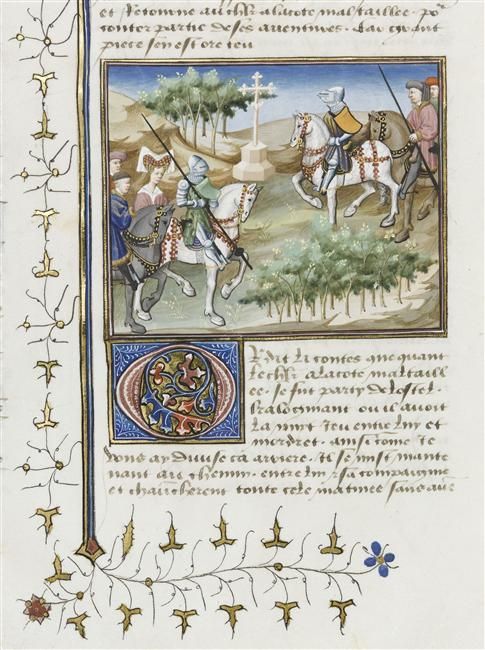 et retourne au chlr a la cote mal taillee . po
conter partie de ses aventures . Car grant
piece sen est ore teu
Or dit li contes que quant
le chlr a la cote mal taill
ee . se fut party de lostel
kalogrinant ou il avoit
la nuit jeu entre luy et
mordret . ainsi come je
vous ay devise ca arriere . Il se mist mainte
nant au chemin . entre luy & sa compaignie
et chevaucherent toute cele matinee sans ave